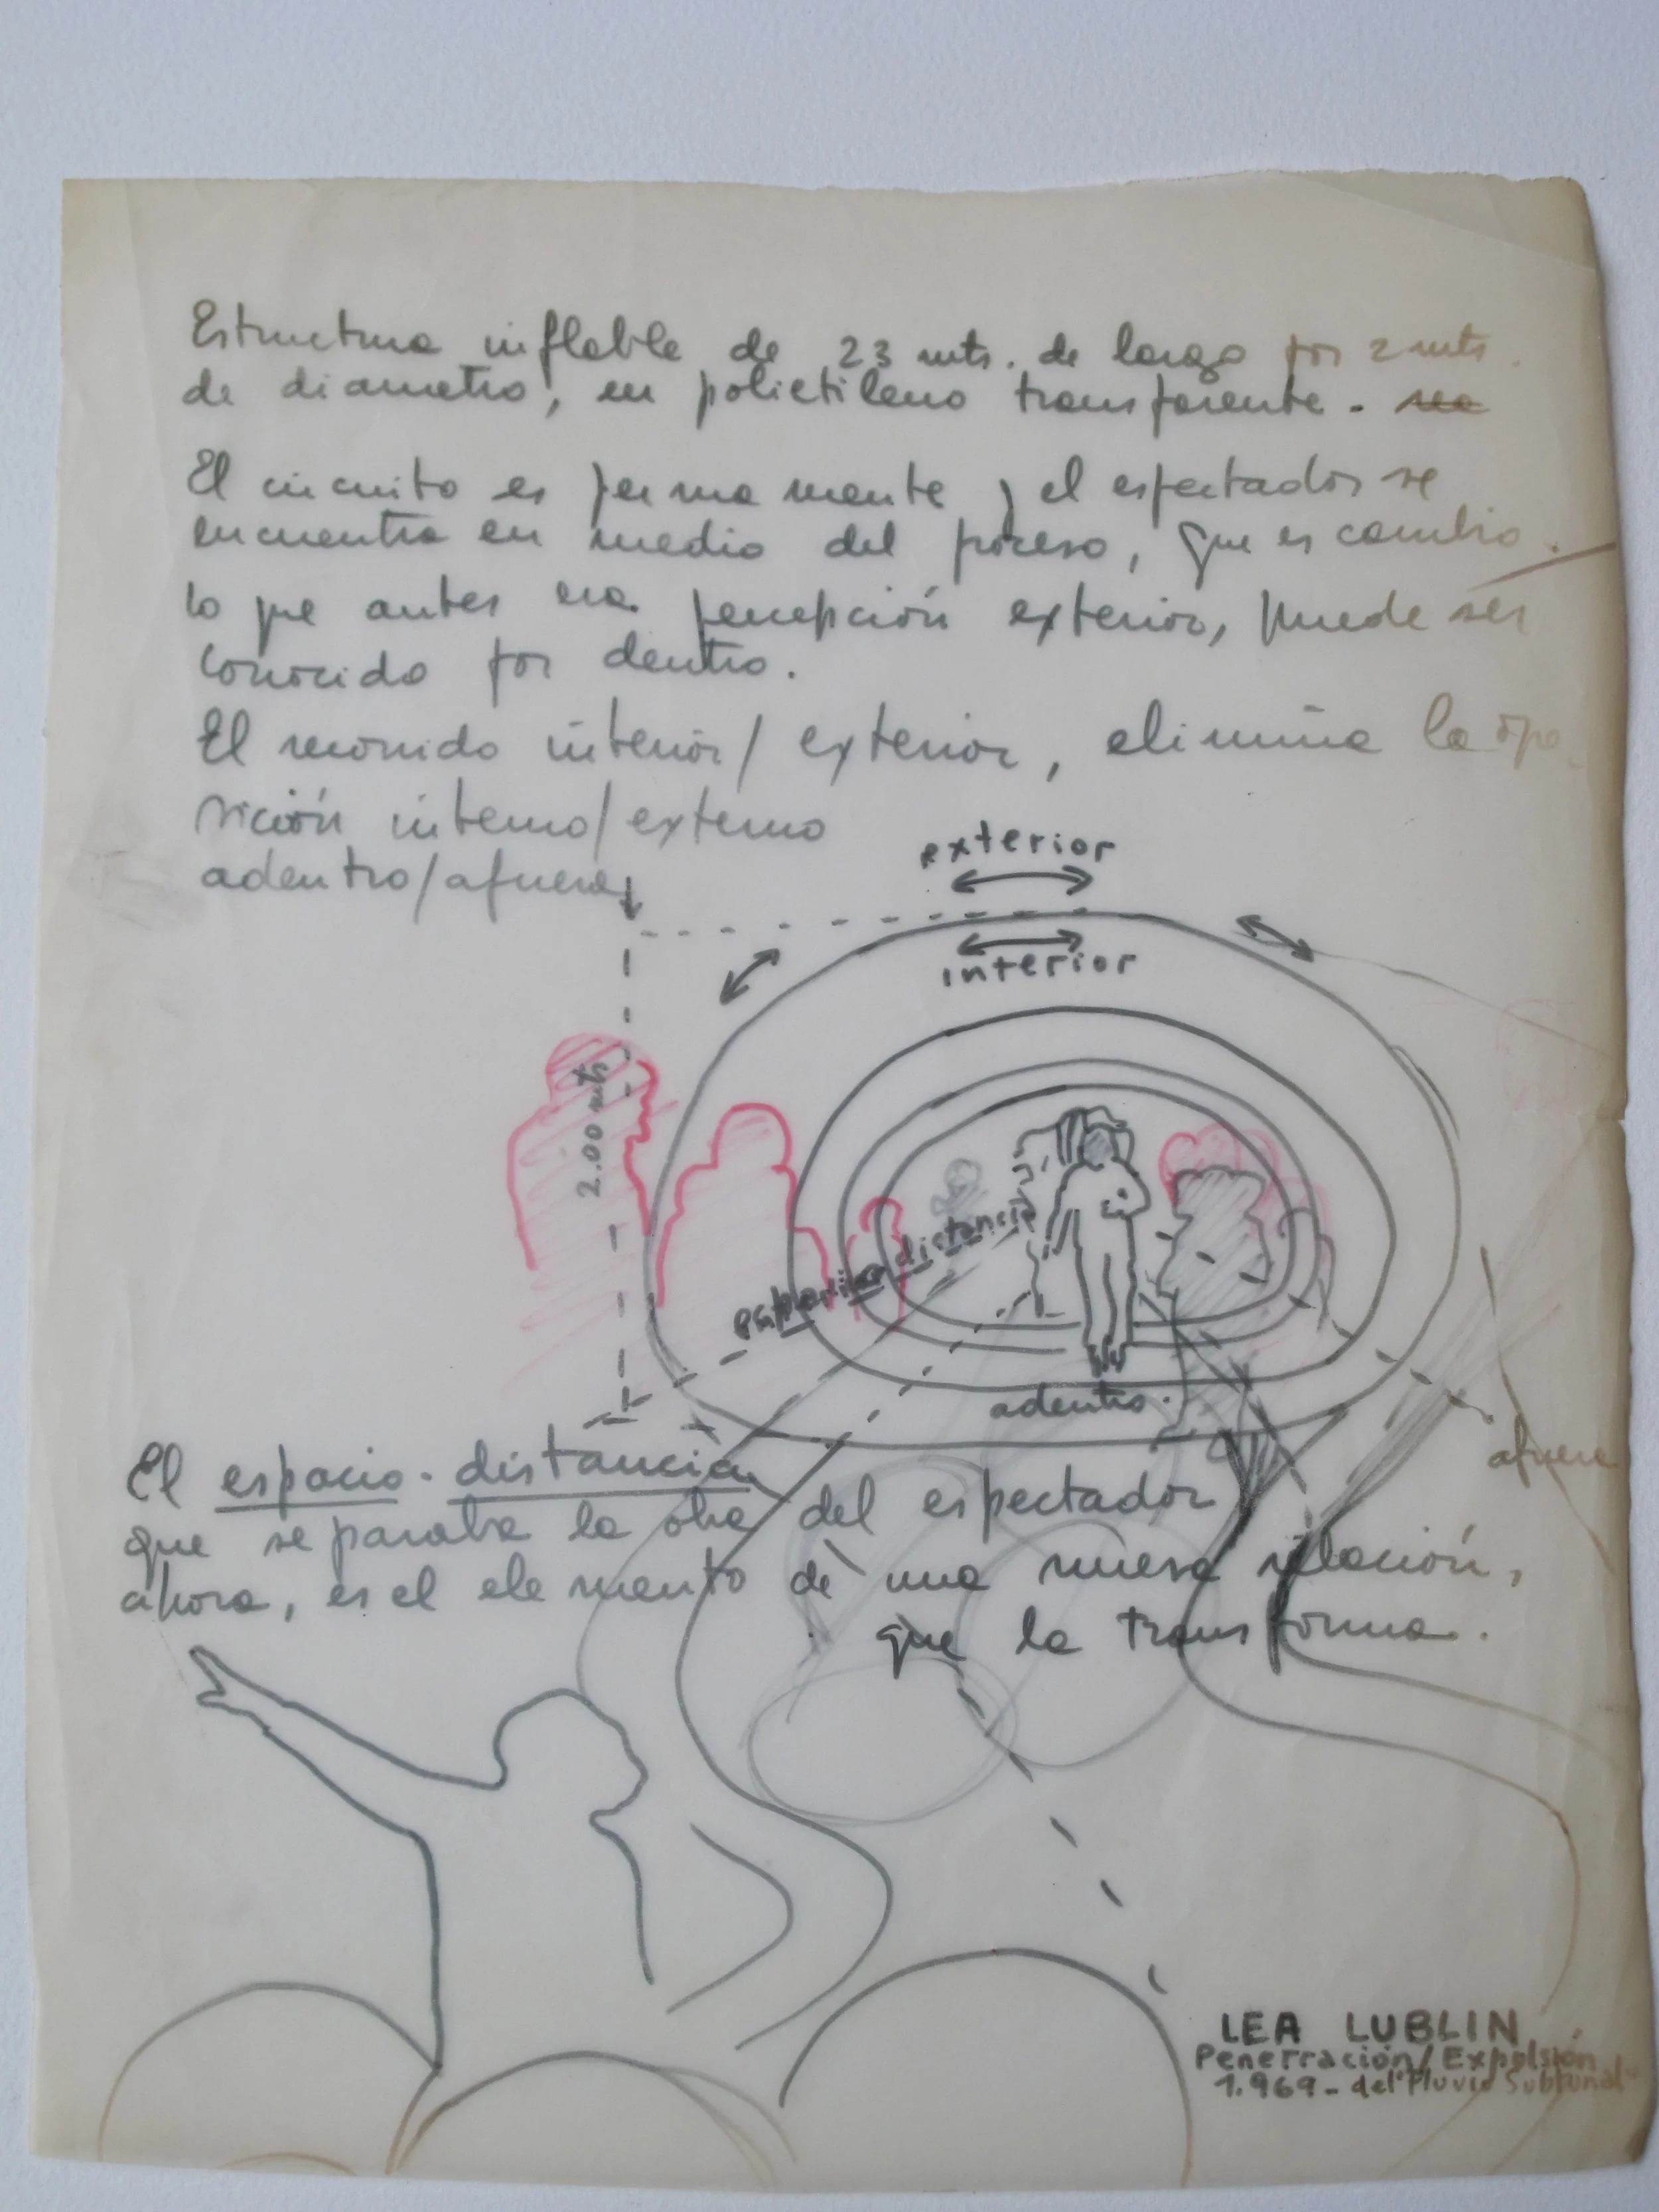 Estructura inflable de 23 mts. de largo por 2 mts.
de diametro, en polietileno transparente.
El circuito es permanente y el espectador se
encuentra en medio del proceso, que es cambio.
lo que antes era percepción exterior, puede ser
conocido por dentro.
El recorrido interior/exterior, elimina la opo
sición interno/externo
adentro/afuera
exterior
interior
2.00 mts
espacio distancia
adentro.
afuera
El espacio-distancia
que separaba la obra del espectador
ahora, es el elemento de una nueva relación,
que la transforma.
LEA LUBLIN
Penetración/Expulsión
1.969- del "Fluvio Subtunal"